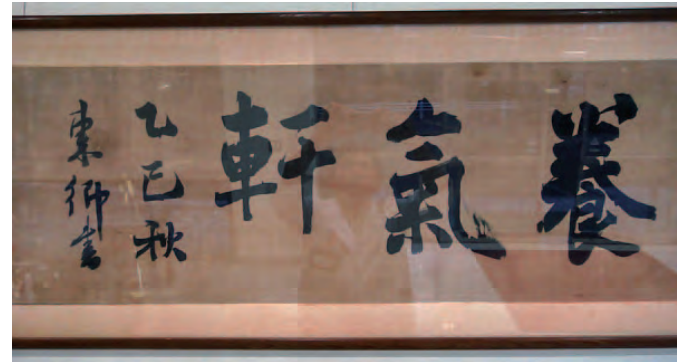 養氣軒
乙巳秋
東卿書